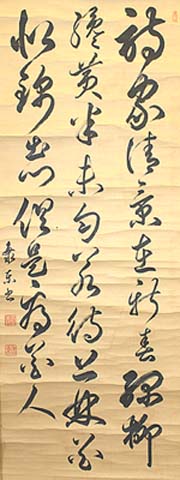 詩家清景在新春綠柳
纔黃半未勻若待上林花
似錦出門俱是看花人
東書